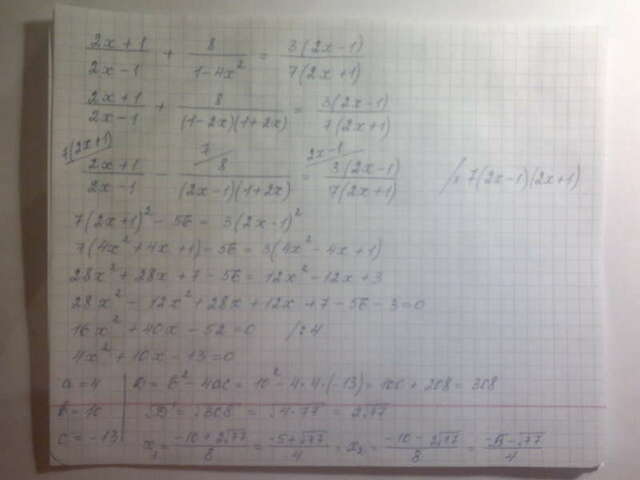 (2x+1)/(2x-1) + 8/(1-4x²) = 3(2x-1)/7(2x+1)
(2x+1)/(2x-1) + 8/(1-2x)(1+2x) = 3(2x-1)/7(2x+1)
7(2x+1)/ (2x+1)/(2x-1) - 7/ 8/(2x-1)(1+2x) = 2x-1/ 3(2x-1)/7(2x+1) /· 7(2x-1)(2x+1)
7(2x+1)² - 56 = 3(2x-1)²
7(4x²+4x+1)-56 = 3(4x²-4x+1)
28x²+28x+7-56 = 12x²-12x+3
28x²-12x²+28x+12x+7-56-3=0
16x²+40x-52=0 /:4
4x²+10x-13=0
a=4 D=b²-4ac=10²-4·4·(-13)=100+208=308
b=10 √D=√308=√4·77=2√77
c=-13 x₁=(-10+2√77)/8=(-5+√77)/4= x₂=(-10-2√77)/8=(-5-√77)/4